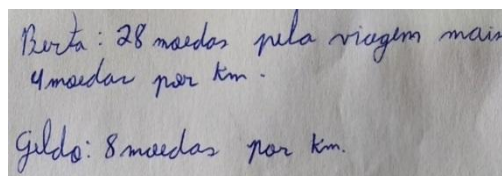 Berta: 28 moedas pela viagem mais
4 moedas por km.
Gildo: 8 moedas por km.